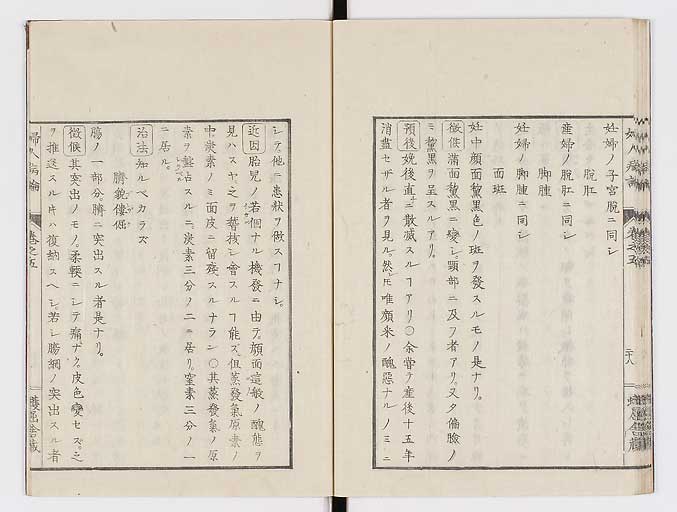 妊婦ノ子宮脫ニ同シ
脫肛
產婦ノ脫肛ニ同シ
脚腫
妊婦ノ脚腫ニ同シ
面斑
妊中顔面黧黒色ノ斑ヲ發スルモノ是ナリ。
徴候 滿面黧黒ニ變シ。頸部ニ及フ者アリ。又タ偏臉ノ
ミ黧黒ヲ呈スルアリ。
預後 娩後直ニ散滅スルヿアリ○余嘗テ產後十五年
消盡セザル者ヲ見ル。然レ𪜈唯顔釆ノ醜惡ナルノミニ
シテ他ニ患狀ヲ做スヿナシ。
近因 胎兒ノ若個ナル機發ニ由テ。顔面這般ノ醜態ヲ
見ハスヤ之ヲ替核シ會スルヿ能ズ但蒸發氣原素ノ
中。炭素ノミ面皮ニ留殘スルナラン○其蒸發氣ノ原
素ヲ鑒占スルニ。炭素三分ノ二ニ居リ。窒素三分ノ一
ニ居ル。
治法 知ルベカラズ
臍貌僂倔
膓ノ一部分。臍ニ突出スル者是ナリ。
徴候 其突出ノモノ。柔輭ニシテ痛ナク。皮色變セズ。之
ヲ推送スルキハ復納スヘシ。若シ膓網ノ突出スル者
婦人病論
卷之五